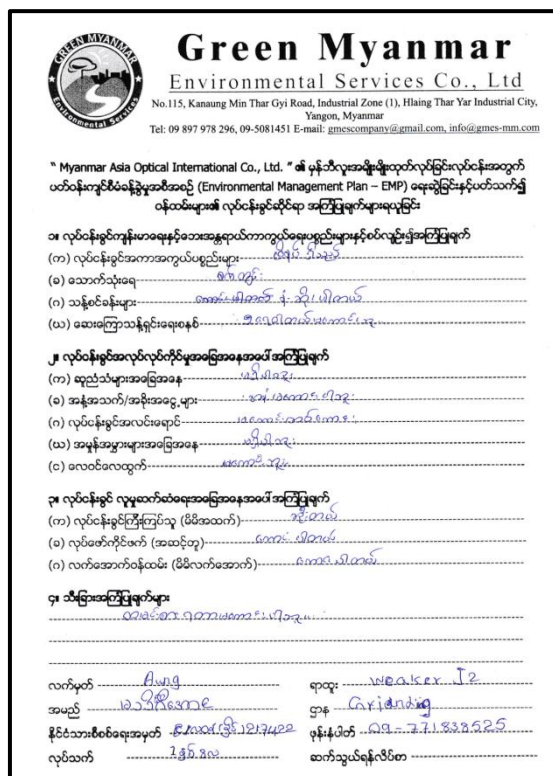 GREEN MYANMAR
Environmental Services
Green Myanmar
Environmental Services Co., Ltd
No.115, Kanaung Min Thar Gyi Road, Industrial Zone (1), Hlaing Thar Yar Industrial City,
Yangon, Myanmar
Tel: 09 897 978 296, 09-5081451 E-mail: gmescompany@gmail.com, info@gmes-mm.com
" Myanmar Asia Optical International Co., Ltd. " ၏ မှန်ဘီလူးအမျိုးမျိုးထုတ်လုပ်ခြင်းလုပ်ငန်းအတွက်
ပတ်ဝန်းကျင်စီမံခန့်ခွဲမှုအစီအစဉ် (Environmental Management Plan – EMP) ရေးဆွဲခြင်းနှင့်ပတ်သက်၍
ဝန်ထမ်းများ၏ လုပ်ငန်းခွင်ဆိုင်ရာ အကြံပြုချက်များရယူခြင်း
၁။ လုပ်ငန်းခွင်ကျန်းမာရေးနှင့်ဘေးအန္တရာယ်ကာကွယ်ရေးပစ္စည်းများနှင့်စပ်လျဉ်း၍အကြံပြုချက်
(က) လုပ်ငန်းခွင်အကာအကွယ်ပစ္စည်းများ
(ခ) သောက်သုံးရေ
(ဂ) သန့်စင်ခန်းများ
(ဃ) ဆေးကြောသန့်ရှင်းရေးစနစ်
၂။ လုပ်ငန်းခွင်အလုပ်လုပ်ကိုင်မှုအခြေအနေအပေါ် အကြံပြုချက်
(က) ဆူညံသံများအခြေအနေ မရှိပါဘူး
(ခ) အနံ့အသက်/အခိုးအငွေ့များ
(ဂ) လုပ်ငန်းခွင်အလင်းရောင်
(ဃ) အမှုန်အမွှားများအခြေအနေ မရှိပါဘူး
(င) လေဝင်လေထွက် မကောင်းဘူး
၃။ လုပ်ငန်းခွင် လူမှုဆက်ဆံရေးအခြေအနေအပေါ် အကြံပြုချက်
(က) လုပ်ငန်းခွင်ကြီးကြပ်သူ (မိမိအထက်) ဆိုးတယ်
(ခ) လုပ်ဖော်ကိုင်ဖက် (အဆင့်တူ) ကောင်းပါတယ်
(ဂ) လက်အောက်ဝန်ထမ်း (မိမိလက်အောက်) ကောင်းပါတယ်
၄။ သီးခြားအကြံပြုချက်များ
လက်မှတ် Aung ရာထူး J2
အမည် ဌာန
နိုင်ငံသားစိစစ်ရေးအမှတ် ဖုန်းနံပါတ် 09-771838525
လုပ်သက် ဆက်သွယ်ရန်လိပ်စာ